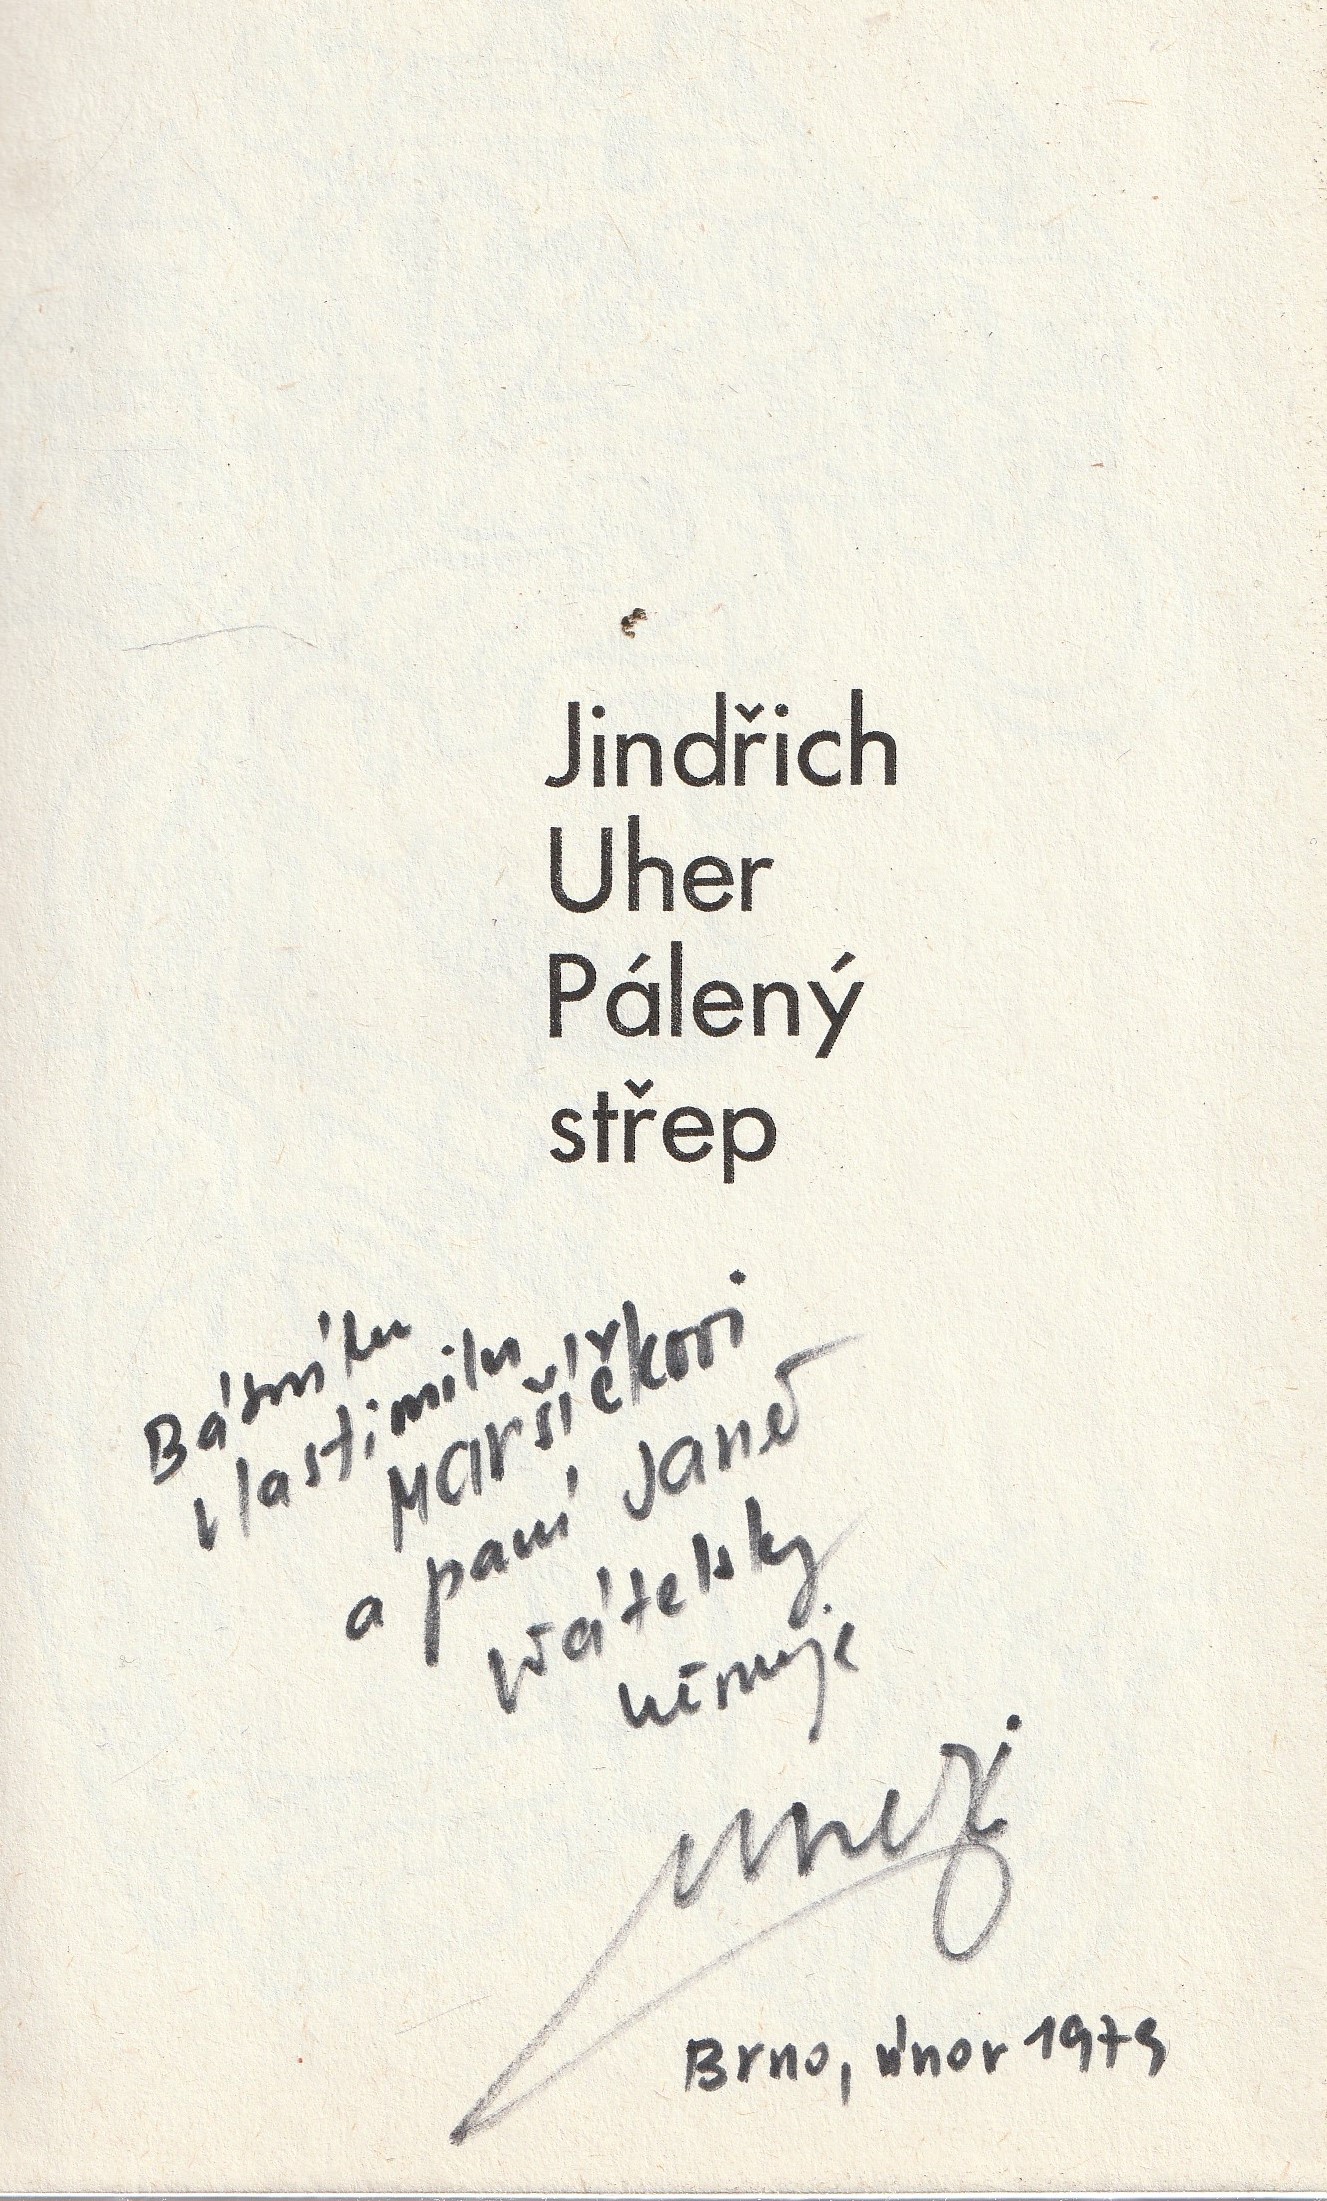 Jindřich
Uher
Pálený
střep
Básníku
Vlastimilu
Maršíčkovi
a paní Janě
přátelsky
věnuje
Uher J.
Brno, únor 1979